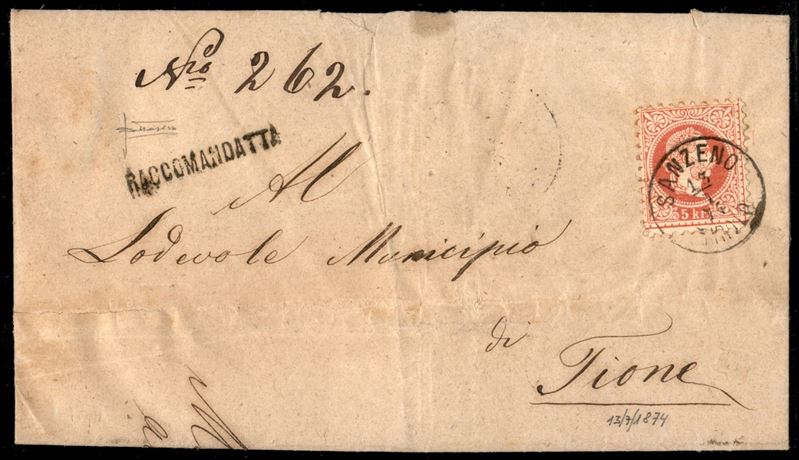 Nro 262.
RACCOMANDATTA
SANZENO
5 kr
Al
Lodevole Municipio
di
Tione
13/7/1874